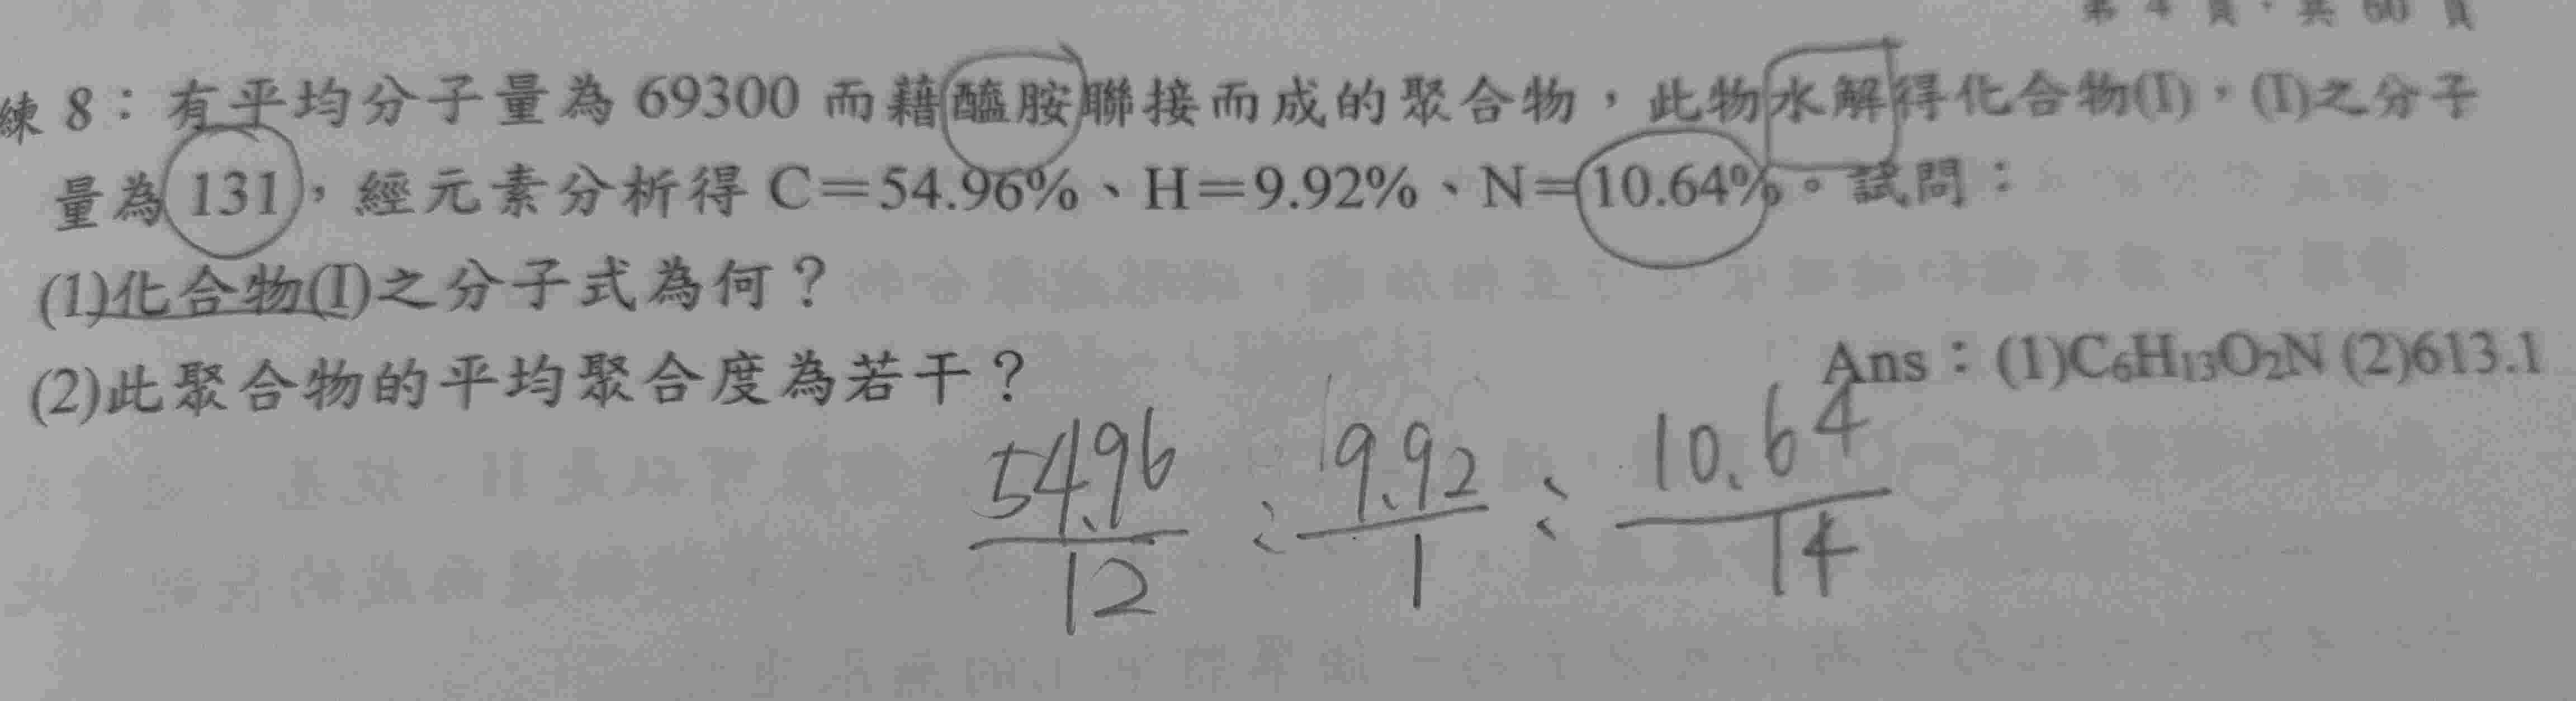 第 4 頁，共 60 頁
練 8：有平均分子量為 69300 而藉醯胺聯接而成的聚合物，此物水解得化合物(I)，(I)之分子
量為 131，經元素分析得 C＝54.96%、H＝9.92%、N＝10.64%。試問：
(1)化合物(I)之分子式為何？
(2)此聚合物的平均聚合度為若干？
Ans：(1)C₆H₁₃O₂N (2)613.1
54.96/12 : 9.92/1 : 10.64/14